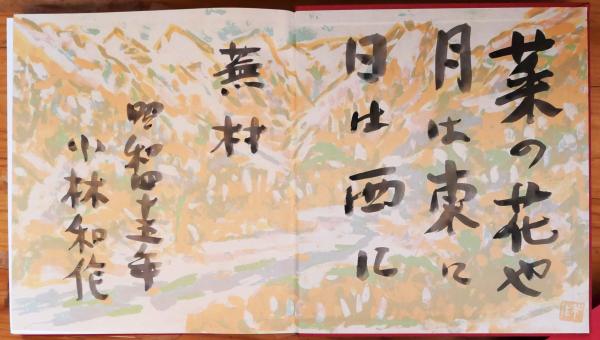 菜の花也
月は東に
日は西に
蕪村
昭和四十年
小林和作